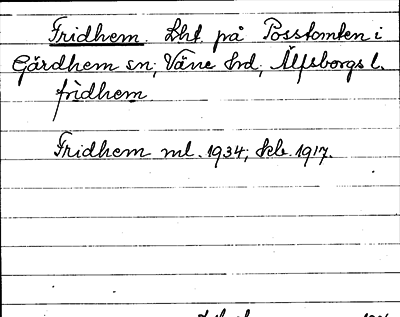 Fridhem. Lht. på Posstomten i
Gärdhem sn; Väne hrd; Älfsborgs l.
fri̇̀dhem
Fridhem ml. 1934; skb. 1917.